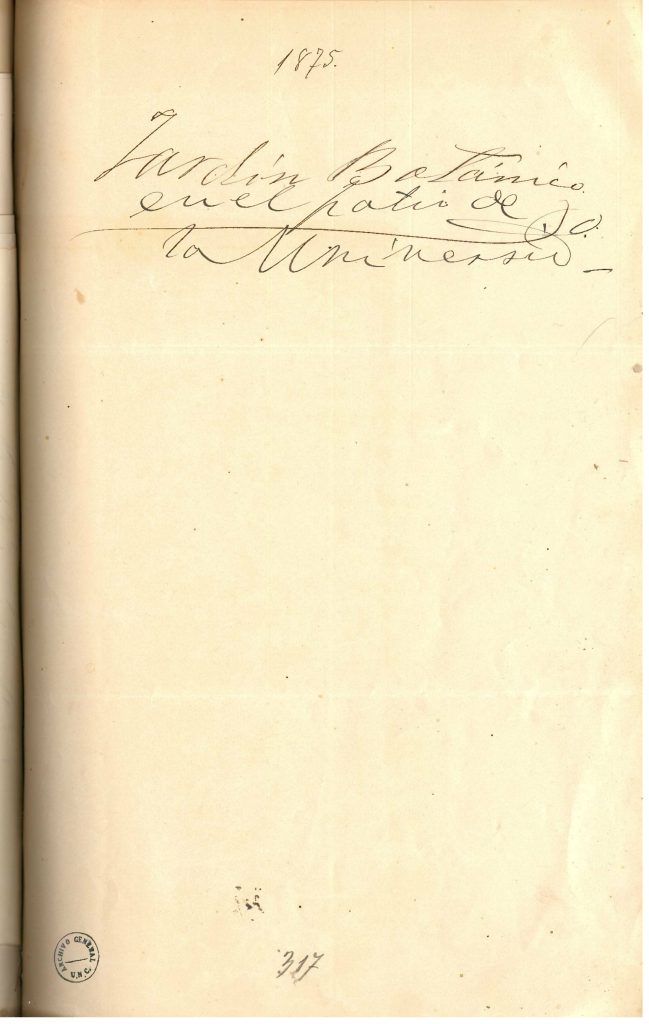 1875.
Jardín Botánico
en el patio de
la Universid
ARCHIVO GENERAL
U.N.C.
317